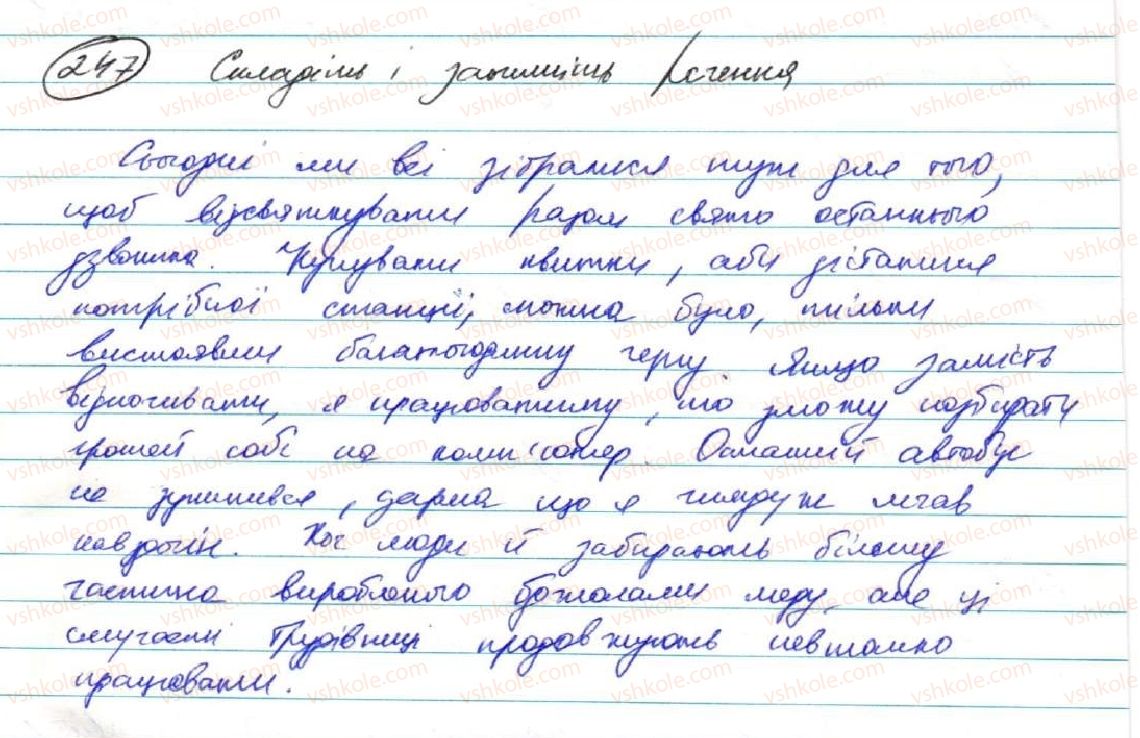 247 Складіть і запишіть речення
Сьогодні ми всі зібралися тут для того,
щоб відсвяткувати разом свято останнього
дзвоника. Купувати квитки, аби дістатися
потрібної станції, можна було, тільки
вистоявши багатогодинну чергу. Якщо замість
відпочивати, я працюватиму, то зможу назбирати
грошей собі на комп'ютер. Останній автобус
не зупинився, дарма що я щодуж мчав
навздогін. Хоч люди й забирають більшу
частину виробленого бджолами меду, але ці
смугасті трудівниці продовжують невтомно
працювати.